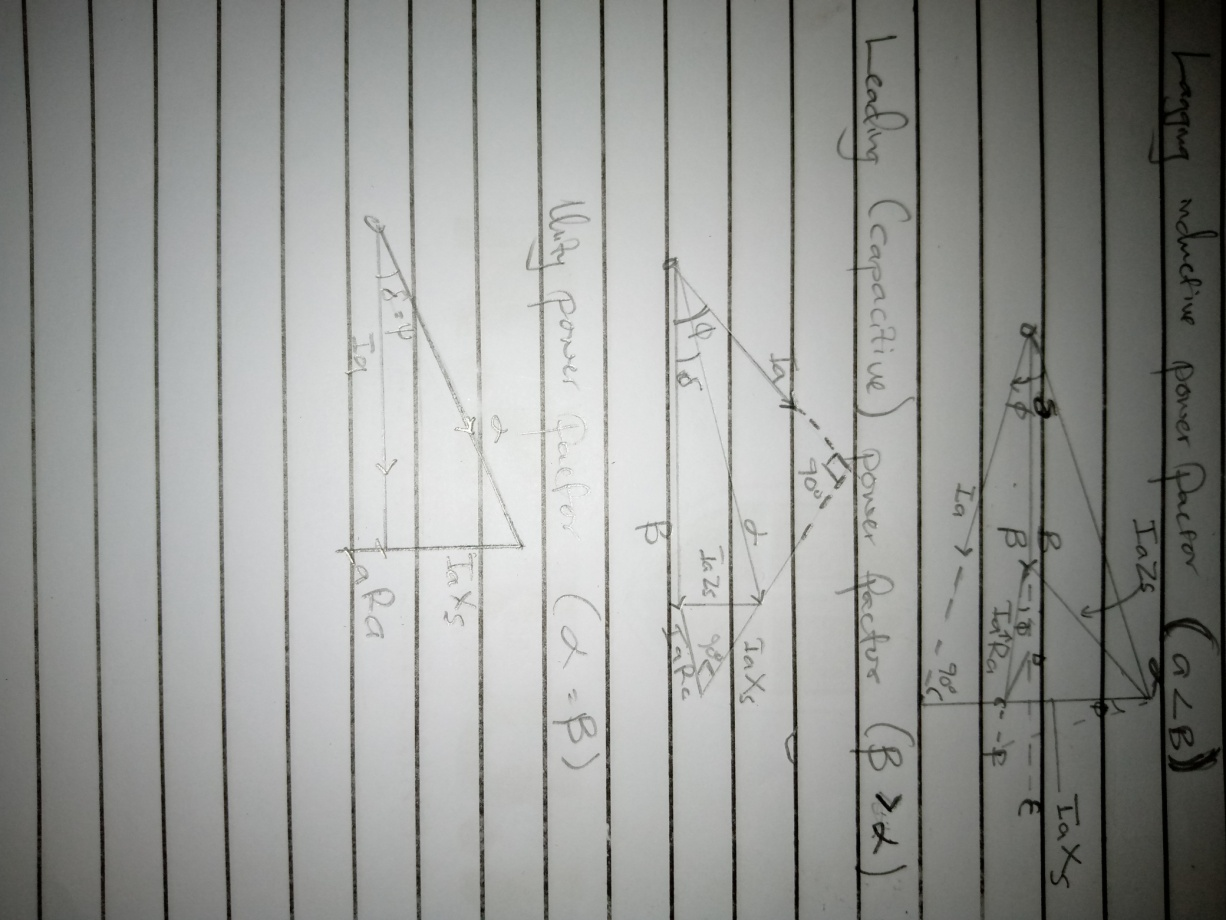 Lagging inductive power factor (a < B)
IaZs
α
δ
ϕ
B
β
ϕ
IaRa
Ia
90°
E
IaXs
Leading (capacitive) power factor (β > α)
Ia
90°
ϕ
δ
α
β
IaZs
IaXs
90°
IaRa
Unity power factor (α = β)
α
δ = ψ
Ia
IaXs
aRa